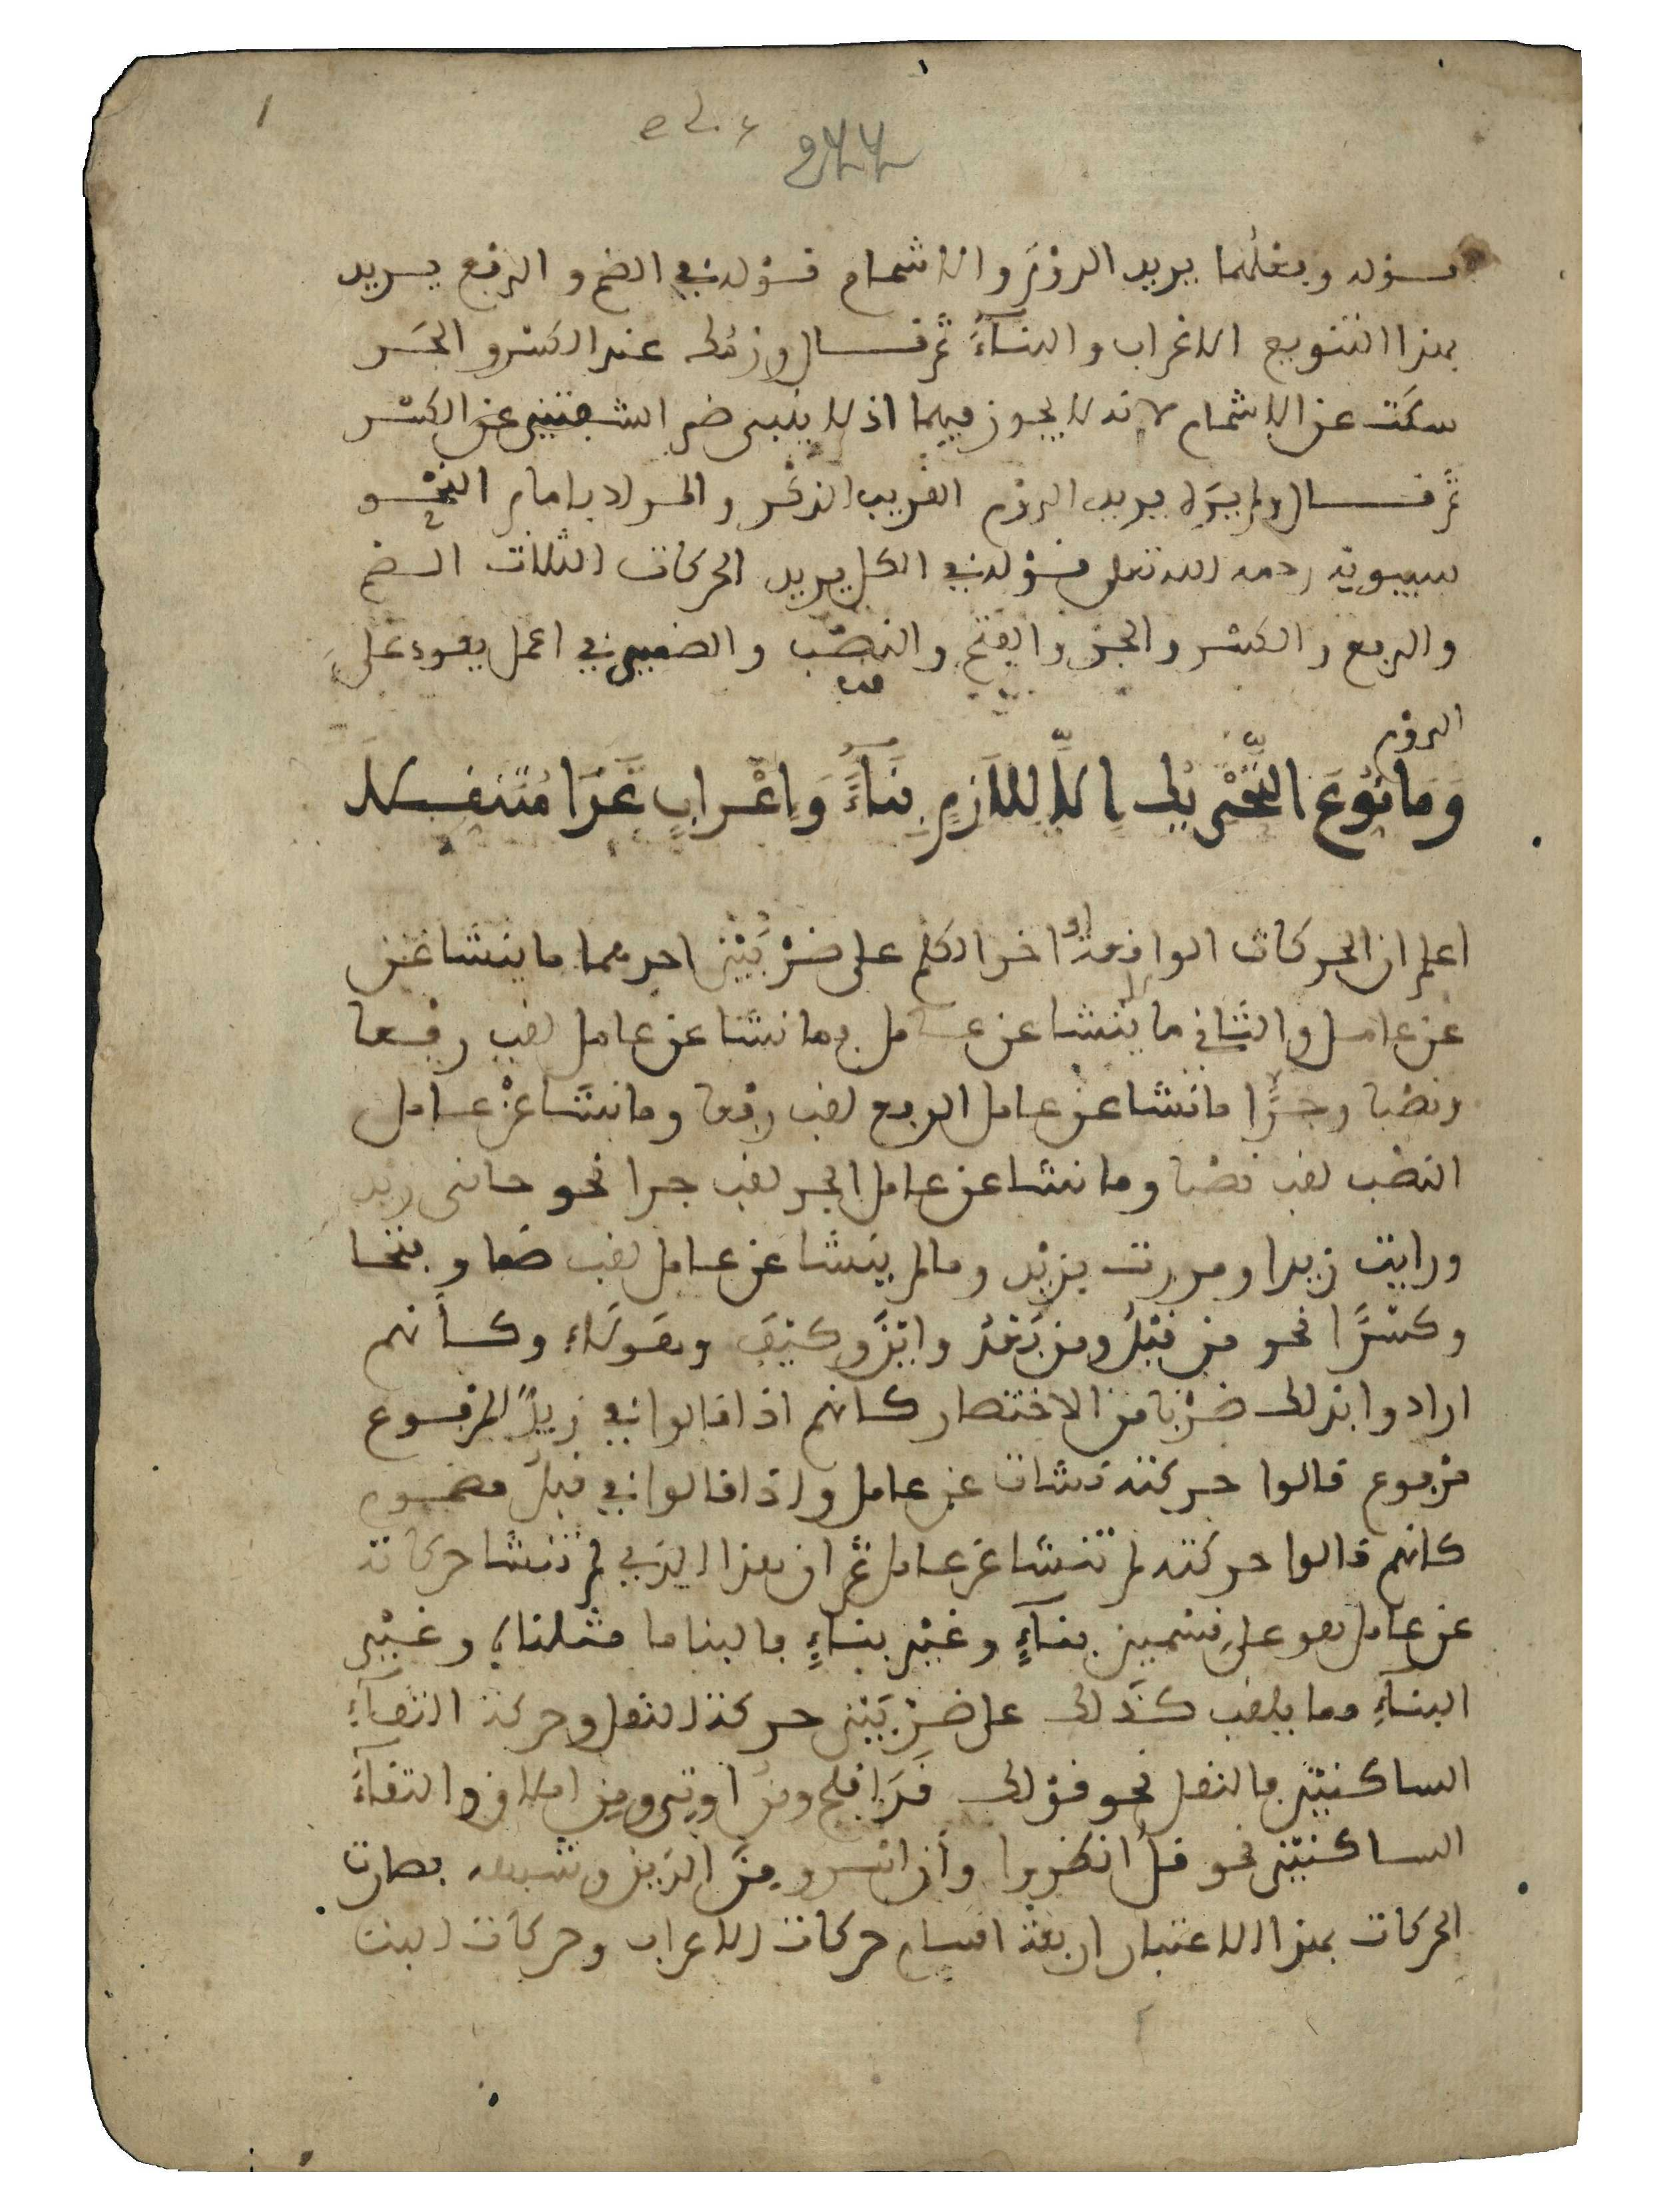 ٢٦٦
قوله وفعلهما يريد الروم والاشمام قوله في الضم والرفع يريد
بهذا التنويع الاعراب والبناء ثم قال ورومك عند الكسر والجر
سكت عن الاشمام لانه لا يجوز فيهما اذ لا ينبي ضم الشفتين عن الكسر
ثم قال ولم يره يريد الروم القريب الذكر والمراد بامام النحو
سيبويه رحمه الله تعلى قوله في الكل يريد الحركات الثلاث الضم
والرفع والكسر والجر والفتح والنصب والضمير في اعمل يعود على
الروم
وَمَا نُوِّعَ التَّحْرِيكُ إِلَّا لِلَازِمٍ بِنَاءً وَإِعْرَابٍ غَدَا مُتَنَقِّلَا
اعلم ان الحركات الواقعة اواخر الكلم على ضربين احدهما ما ينشا عن
عن عامل والثاني ما لا ينشا عن عامل فما نشا عن عامل لقب رفعا
ونصبا وجرا ما نشا عن عامل الرفع لقب رفعا وما نشا عن عامل
النصب لقب نصبا وما نشا عن عامل الجر لقب جرا نحو جاءني زيد
ورايت زيدا ومررت بزيد وما لم ينشا عن عامل لقب ضما وفتحا
وكسرا نحو من قبلُ ومن بعدُ واينَ وكيفَ وهؤلاءِ وكأنهم
ارادوا بذلك ضربا من الاختصار كانهم اذا قالوا في زيدٌ المرفوع
مرفوع قالوا حركته نشات عن عامل واذا قالوا في قبلُ مضموم
كانهم قالوا حركته لم تنشا عن عامل ثم ان هذا الذي لم تنشا حركاته
عن عامل هو على قسمين بناءٍ وغير بناءٍ فالبنا ما مثلناه وغير
البناءِ وما يلقب كذلك على ضربين حركة النقل وحركة التقاءِ
الساكنين فالنقل نحو قولك قدَ افلح ومنُ اوتي ومنِ املاق والتقاءُ
الساكنين نحو قلُ انظروا وأن اسر ومنَ الذين وشبهه فصارت
الحركات بهذا الاعتبار اربعة اقسام حركات الاعراب وحركات البنا